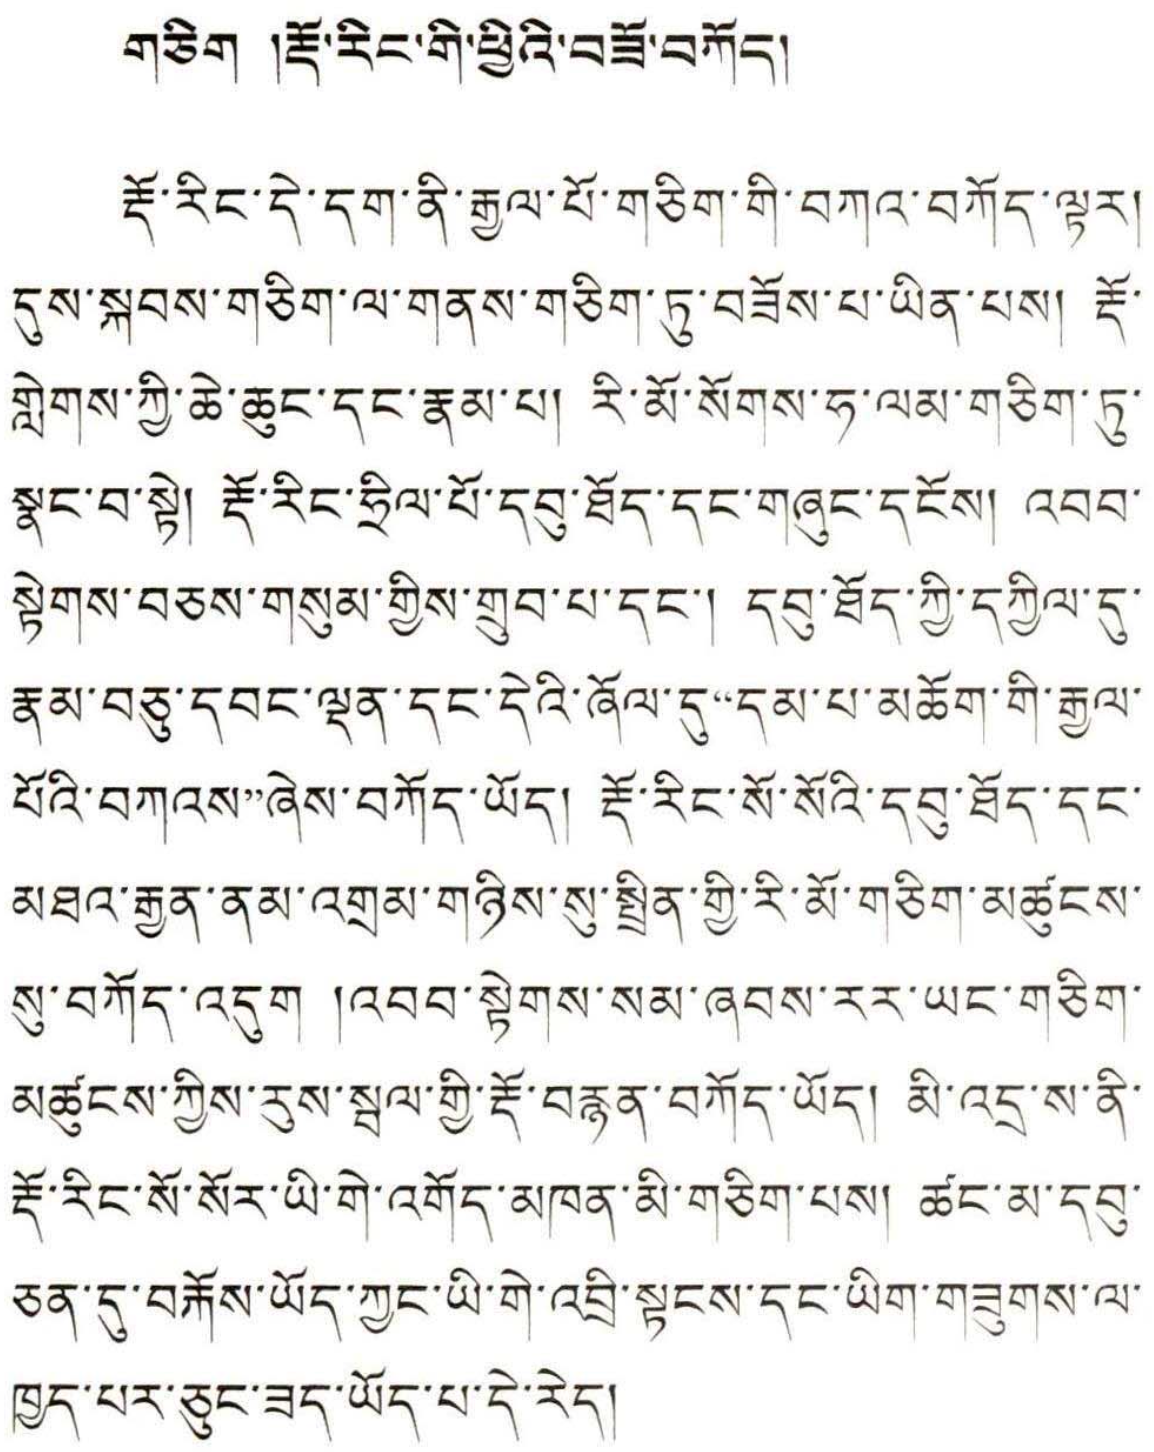 གཅིག །རྡོ་རིང་གི་ཕྱིའི་བཟོ་བཀོད།
རྡོ་རིང་དེ་དག་ནི་རྒྱལ་པོ་གཅིག་གི་བཀའ་བཀོད་ལྟར།
དུས་སྐབས་གཅིག་ལ་གནས་གཅིག་ཏུ་བཟོས་པ་ཡིན་པས། རྡོ་
གླེགས་ཀྱི་ཆེ་ཆུང་དང་རྣམ་པ། རི་མོ་སོགས་ཧ་ལམ་གཅིག་ཏུ་
སྣང་བ་སྟེ། རྡོ་རིང་ཧྲིལ་པོ་དབུ་ཐོད་དང་གཞུང་དངོས། འབབ་
སྟེགས་བཅས་གསུམ་གྱིས་གྲུབ་པ་དང་། དབུ་ཐོད་ཀྱི་དཀྱིལ་དུ་
རྣམ་བཅུ་དབང་ལྡན་དང་དེའི་ཞོལ་དུ“དམ་པ་མཆོག་གི་རྒྱལ་
པོའི་བཀའས”ཞེས་བཀོད་ཡོད། རྡོ་རིང་སོ་སོའི་དབུ་ཐོད་དང་
མཐའ་རྒྱན་ནམ་འགྲམ་གཉིས་སུ་སྤྲིན་གྱི་རི་མོ་གཅིག་མཚུངས་
སུ་བཀོད་འདུག །འབབ་སྟེགས་སམ་ཞབས་རར་ཡང་གཅིག་
མཚུངས་ཀྱིས་རུས་སྦལ་གྱི་རྡོ་བརྙན་བཀོད་ཡོད། མི་འདྲ་ས་ནི་
རྡོ་རིང་སོ་སོར་ཡི་གེ་འགོད་མཁན་མི་གཅིག་པས། ཚང་མ་དབུ་
ཅན་དུ་བརྐོས་ཡོད་ཀྱང་ཡི་གེ་འབྲི་སྟངས་དང་ཡིག་གཟུགས་ལ་
ཁྱད་པར་ཅུང་ཟད་ཡོད་པ་དེ་རེད།